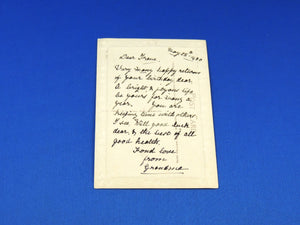 May 28th
Dear Irene,
Very many happy returns
of your birthday dear
a bright & joyous life
be yours for many a
year. You are
keeping time with others
I see. Will your
dear, & the best of all
good health.
Fond love
from
Grandma